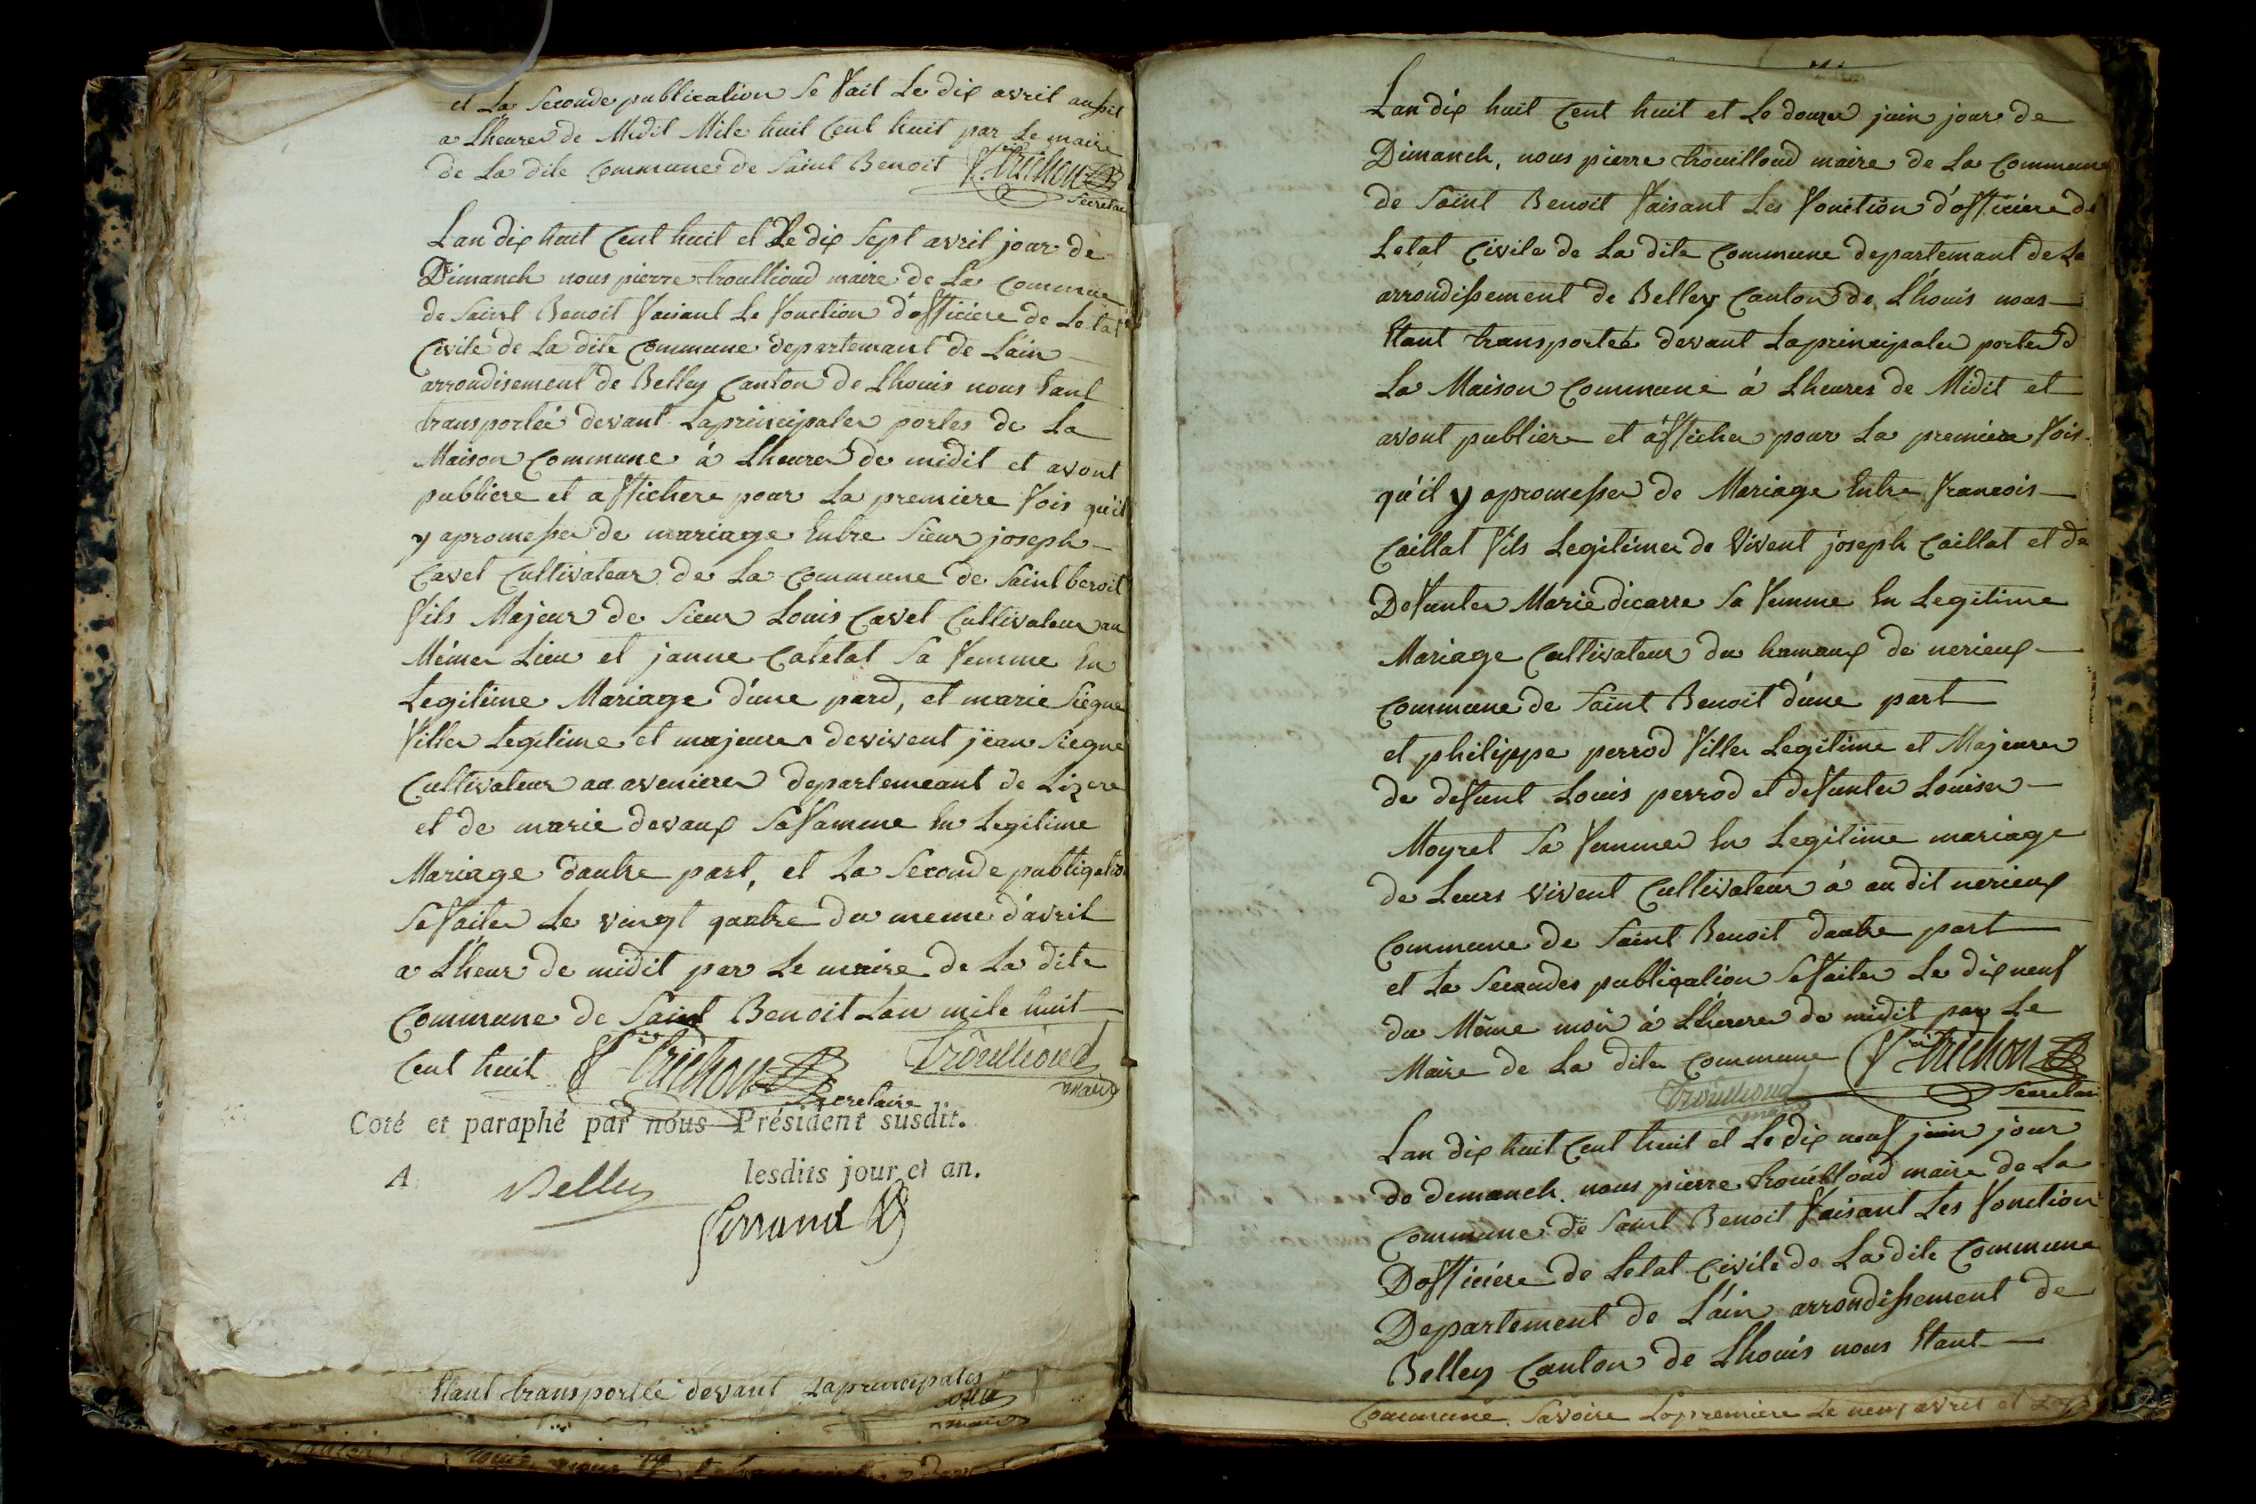 et La Seconde publication Se Fait Le dix avril aussit
a Lheure de Midit Mile huit Cent huit par Le maire
de La dite Commune de Saint Benoit Trichon
Secretai
Lan dix huit Cent huit et Le dix Sept avril jour de
Dimanch nous pierre troullioud maire de La Commune
de Saint Benoit Faisant Le Fonction d'officiere de Letat
Civile de La dite Commune departemant de Lain
arrondisement de Belley Canton de Lhouis nous Etant
transportéé devant Laprincipales portes de La
Maison Commune á Lheure de midit et avont
publiere et affichere pour La premiere Fois qu'il
y apromesse de mariage Entre Sieur joseph
Cavet Cultivateur de La Commune de Saint benoit
Fils Majeur de Sieur Louis Cavet Cultivateur au
Méme Lieu et janne Catelat Sa Femme En
Legitime Mariage d'une pard, et marie Siegne
Fille Legitime et majeure devivent jean Siegne
Cultivateur au aveniere departemeant de Lizere
et de marie devaux SaFamme En Legitime
Mariage dautre part, et La Seconde publigation
SeFaite Le vingt quatre du meme d'avril
a Lheur de midit par Le maire de La dite
Commune de Saint Benoit Lan mile huit
Cent huit Trichon Troullioud
Secretaire maire
Coté et paraphé par nous Président susdit.
A Belley lesdits jour et an.
Ferrand
Etant transportéé devant Laprincipales
maire
Lan dix huit Cent huit et Le douze juin jour de
Dimanch, nous pierre trouilloud maire de La Commune
de Saint Benoit Faisant Les Fonction d'officiere de
Letat Civile de La dite Commune departemant de La
arrondissement de Belley Canton de Lhouis nous
Etant transportéé devant Laprincipale porte d
La Maison Commune á Lheure de Midit et
avont publiere et áffiche pour La premiere Fois
qu'il y apromesse de Mariage Entre Francois
Caillat Fils Legitime de Vivent joseph Caillat et de
DeFunte Marie dicarre Sa Femme En Legitime
Mariage Cultivateur du hamaux de nerieux
Commune de Saint Benoit d'une part
et philippe perrod Fille Legitime et Majeure
de deFunt Louis perrod et deFunte Louise
Moyret Sa Femme En Legitime mariage
de Leurs vivent Cultivateur á au dit nerieux
Commune de Saint Benoit dautre part
et La Secondes publigation SeFaite Le dix neuf
du Même mois á Lheure de midit par Le
Maire de La dite Commune Trichon
Troullioud Secretai
maire
Lan dix huit Cent huit et Le dix neuf juin jour
de demanch. nous pierre trouilloud maire de La
Commune de Saint Benoit Faisant Les Fonction
Dofficiere de Letat Civile de La dite Commune
Departement de L'ain arrondissement de
Belley Canton de Lhouis nous Etant
Commune Savoire Lapremiere Le neuf avril et